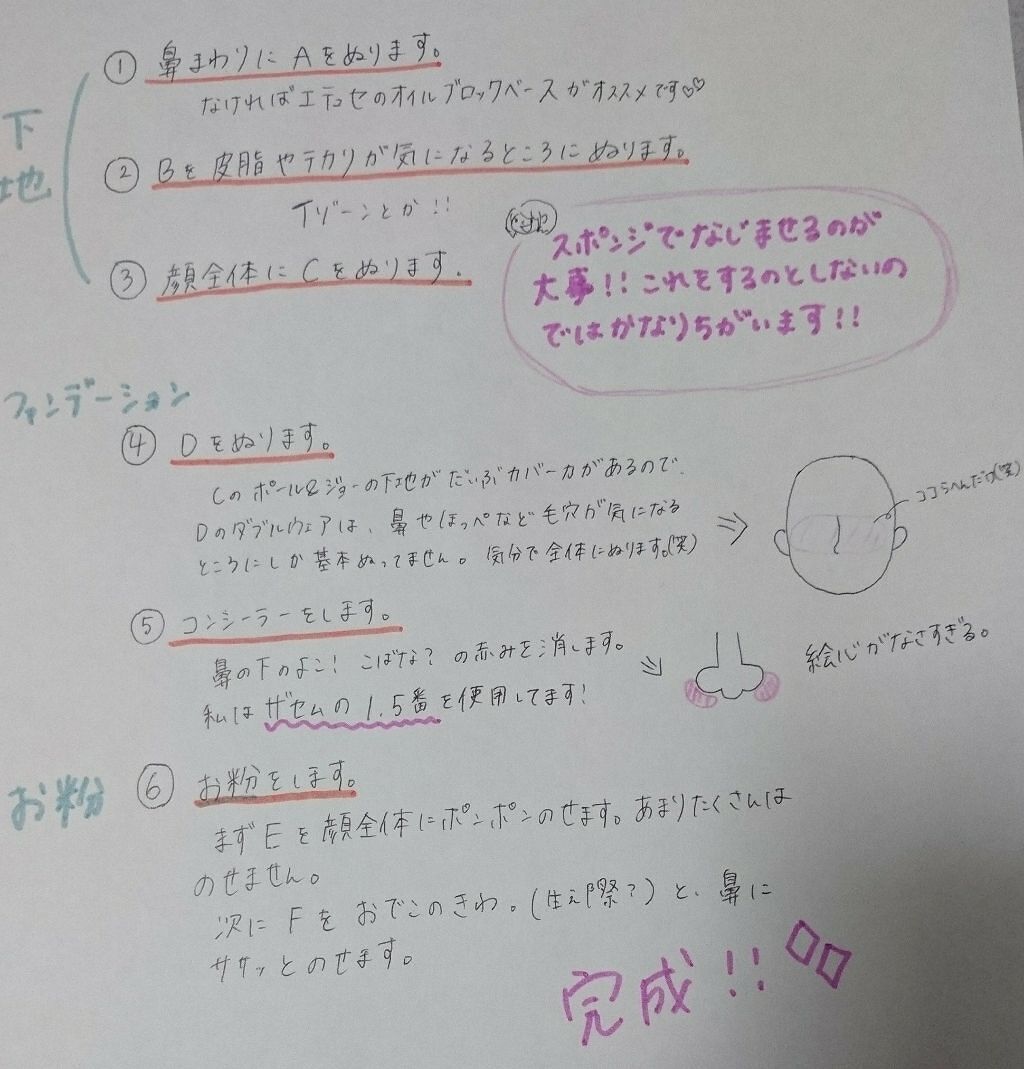 下地
① 鼻まわりに Aをぬります。
なければエテュセのオイルブロックベースがオススメです♡♡
② Bを皮脂やテカリが気になるところにぬります。
Tゾーンとか!!
③ 顔全体に Cをぬります.
スポンジでなじませるのが
大事!! これをするのとしないの
ではかなりちがいます!!
ファンデーション
④ Dをぬります。
Cのポール&ジョーの下地がだいぶカバー力があるので、
Dのダブルウェアは、鼻やほっぺなど毛穴が気になる
ところにしか基本ぬってません。気分で全体にぬります。(笑)
⇒
ココらへんだけ(笑)
⑤ コンシーラーをします。
鼻の下のよこ! こばな? の赤みを消します。
私はザセムの 1.5番を使用してます!
絵心がなさすぎる。
お粉
⑥ お粉をします。
まずEを顔全体にポンポンのせます。あまりたくさんは
のせません。
次に Fを おでこのきわ。(生え際?) と、鼻に
ササッとのせます。
完成!!